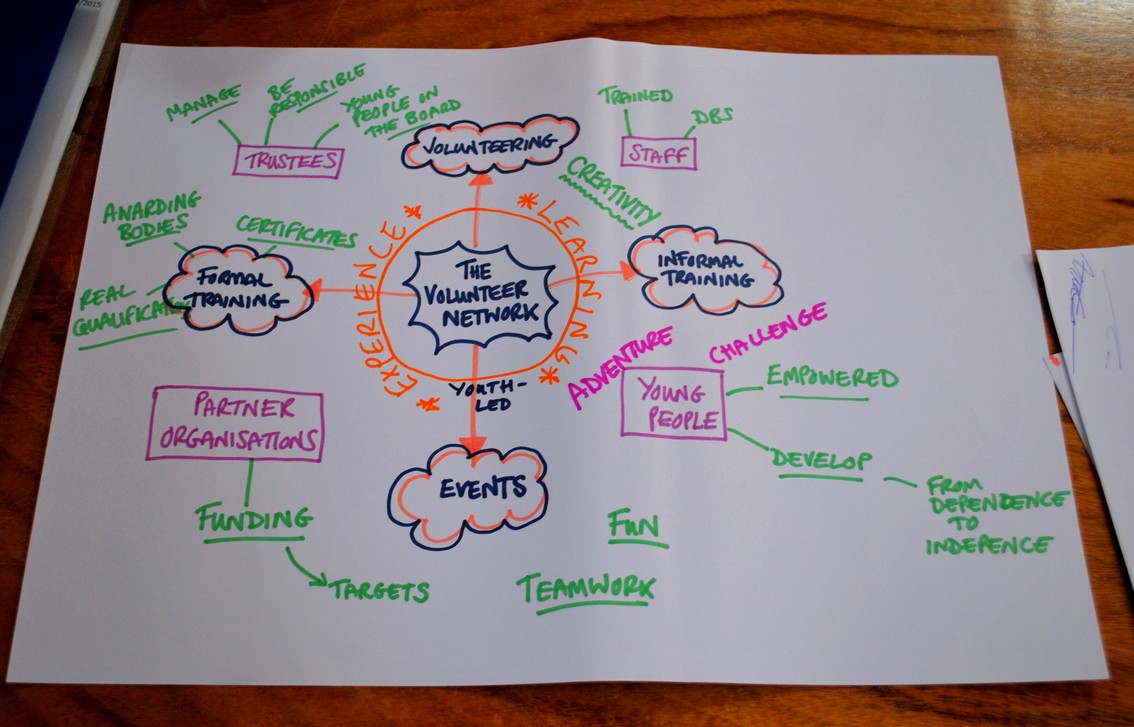 /2015
MANAGE
BE
RESPONSIBLE
YOUNG
PEOPLE ON
THE BOARD
TRUSTEES
VOLUNTEERING
TRAINED
DBS
STAFF
CREATIVITY
AWARDING
BODIES
CERTIFICATES
REAL
FORMAL
TRAINING
EXPERIENCE * * LEARNING * *
THE
VOLUNTEER
NETWORK
INFORMAL
TRAINING
YOUTH-
LED
ADVENTURE
CHALLENGE
PARTNER
ORGANISATIONS
YOUNG
PEOPLE
EMPOWERED
DEVELOP
FROM
DEPENDENCE
TO
INDEPENCE
EVENTS
FUNDING
TARGETS
FUN
TEAMWORK